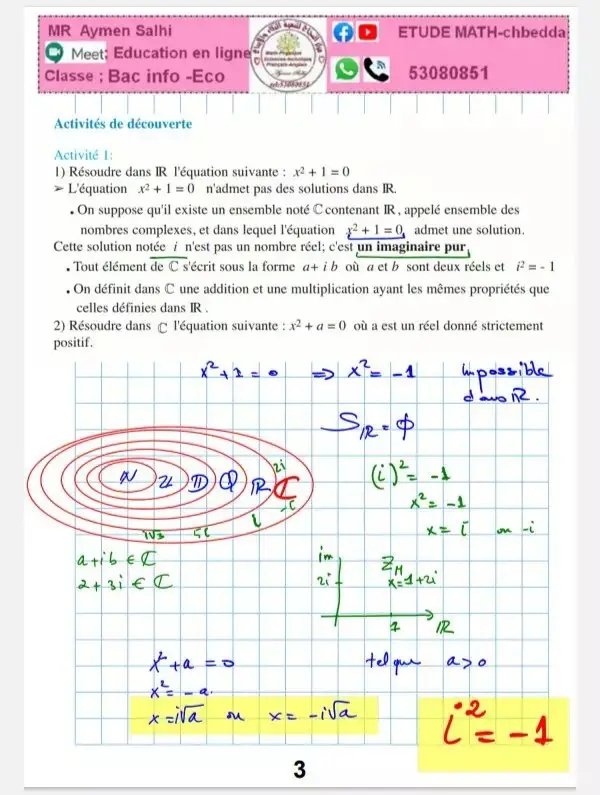 MR Aymen Salhi
Meet; Education en ligne
Classe ; Bac info -Eco
ETUDE MATH-chbedda
53080851
Activités de découverte
Activité 1:
1) Résoudre dans IR l'équation suivante : x² + 1 = 0
➢ L'équation x² + 1 = 0 n'admet pas des solutions dans IR.
• On suppose qu'il existe un ensemble noté ℂ contenant IR, appelé ensemble des
nombres complexes, et dans lequel l'équation x² + 1 = 0, admet une solution.
Cette solution notée i n'est pas un nombre réel; c'est un imaginaire pur,
• Tout élément de ℂ s'écrit sous la forme a+ i b où a et b sont deux réels et i² = - 1
• On définit dans ℂ une addition et une multiplication ayant les mêmes propriétés que
celles définies dans IR .
2) Résoudre dans ℂ l'équation suivante : x² + a = 0 où a est un réel donné strictement
positif.
x² + 1 = 0 ⇒ x² = -1 impossible
dans IR.
S_IR = ∅
IN ℤ ID ℚ IR ℂ
2i
-i
i
i√3
5i
(i)² = -1
x² = -1
x = i ou -i
a+ib ∈ ℂ
2+3i ∈ ℂ
im
2i
Z_M
x=1+2i
1
IR
x² + a = 0 tel que a > 0
x² = -a.
x = i√a ou x = -i√a
i² = -1
3